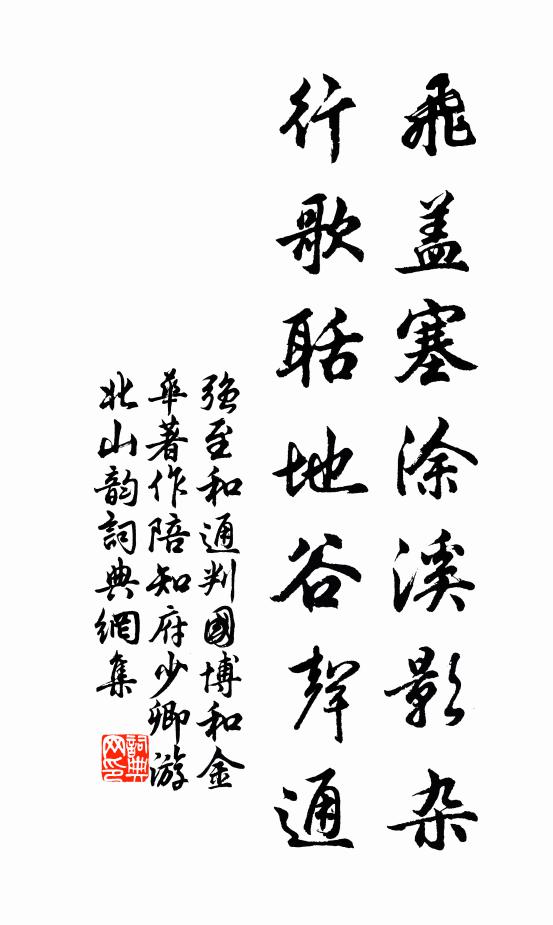 飛盖塞涂溪影杂
行歌聒地谷聲通
强至和通判國博和金
華著作陪知府少卿游
北山韵詞典網集
詞典网印